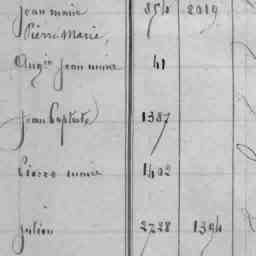 Jean marie 854 2019
Pierre Marie,
Aug.in Jean marie 41
Jean Baptiste 1387
Pierre marie 1402
Julien 2728 1394